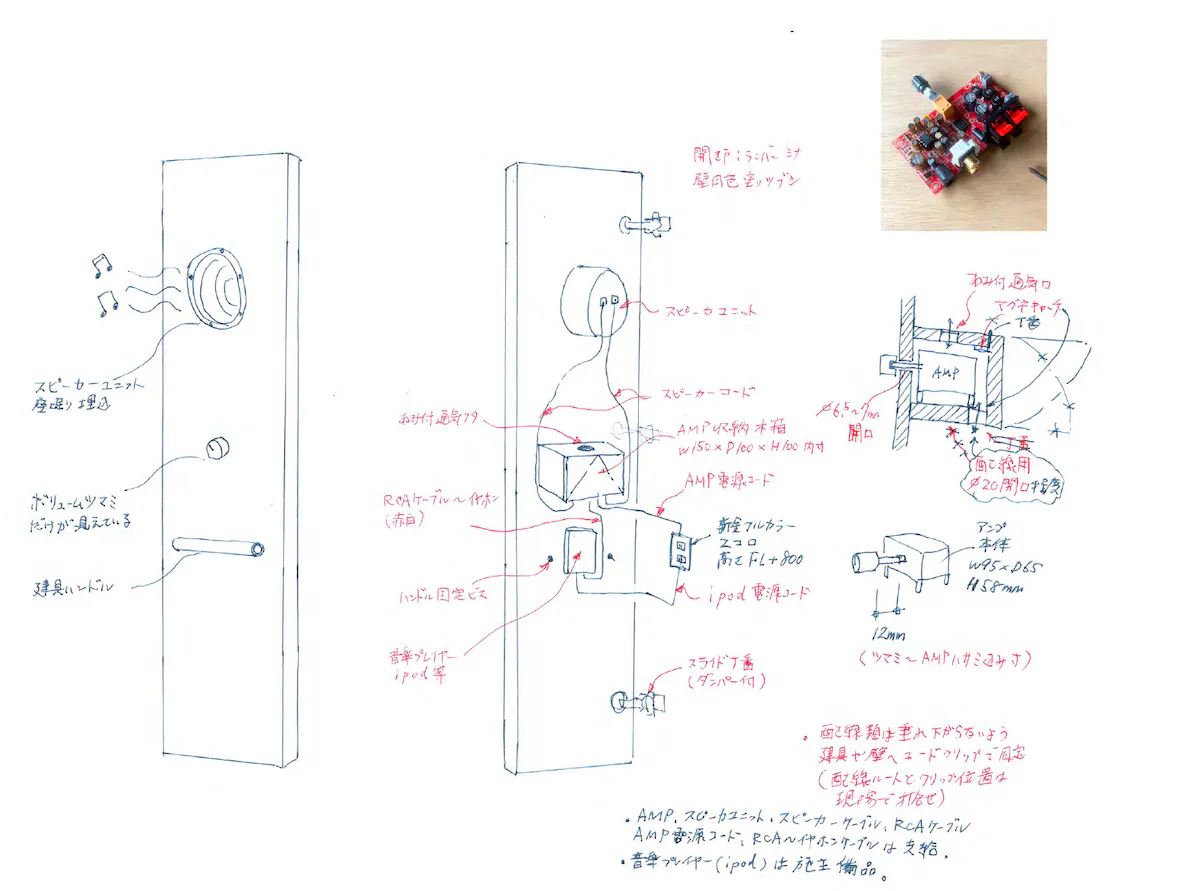 開き戸：ランバーシナ
壁同色塗リツブシ
スピーカーユニット
座堀り埋込
ボリュームツマミ
だけが見えている
建具ハンドル
スピーカユニット
スピーカーコード
あみ付通気フタ
AMP収納木箱
W150×D100×H100内寸
RCAケーブル〜イヤホン
(赤白)
AMP電源コード
新金フルカラー
エコロ
高さFL+800
ハンドル固定ビス
ipod電源コード
音楽プレイヤー
ipod等
スライド丁番
(ダンパー付)
あみ付通気口
マグネキャッチ
丁番
AMP
φ6.5〜7mm
開口
丁番
配線用
φ20開口程度
アンプ
本体
W95×D65
H58mm
12mm
(ツマミ〜AMPハサミ込み寸)
・配線類は垂れ下がらないよう
建具や壁へコードクリップで固定
(配線ルートとクリップ位置は
現場で打合せ)
・AMP、スピーカユニット、スピーカーケーブル、RCAケーブル
AMP電源コード、RCA〜イヤホンケーブルは支給。
・音楽プレイヤー(ipod)は施主備品。